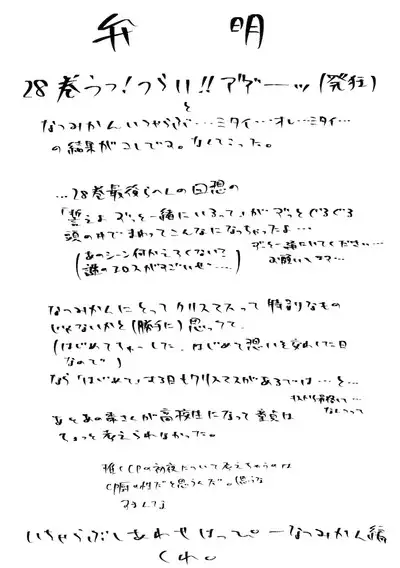 弁明
28巻うっ!つらい!!アアーッ(発狂)
と
なつみかんいちゃらぶ…ミタイ…オレ…ミタイ…
の結果がコレです。なんてこった。
…28巻最後らへんの回想の
「誓えよ ずっと一緒にいるって」がずっとぐるぐる
頭の中でまわってこんなになっちゃったよ…
(あのシーン何かえてくない?
誰のエロスがすごいぜ…)
ずっと一緒にいてください…
お願いします…
なつみかんにとってクリスマスって特別なもの
じゃないかと(勝手に)思ってて
(はじめてちゅーした、はじめて想いを交わした日
なので)
なら「はじめて」する日もクリスマスがあるでは…と…
あとあの
さんが高校生になって童貞は
ちょっと考えられなかった。
推しCPの初夜について考えちゃうのは
CP厨の性だと思うんだ。
いちゃらぶしあわせはっぴーなつみかん編
くれ。